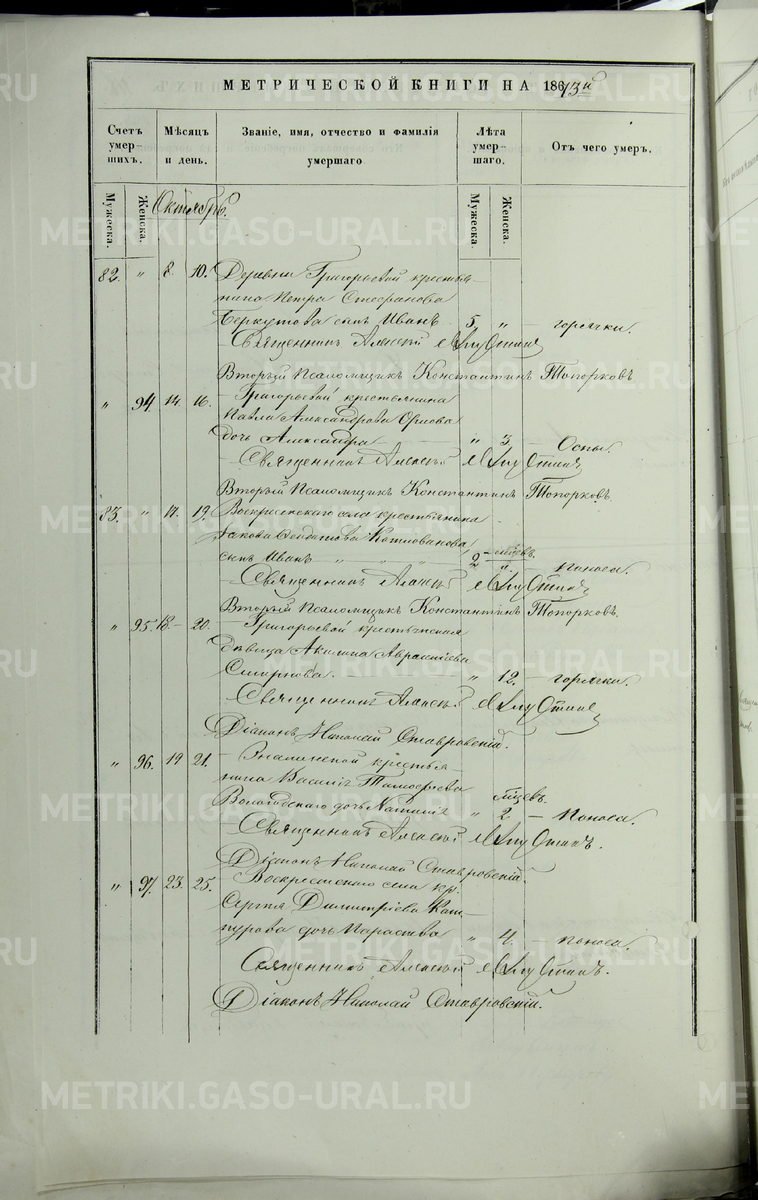 МЕТРИЧЕСКОЙ КНИГИ НА 1867 3й
Счетъ умершихъ.
Мѣсяцъ и день.
Званіе, имя, отчество и фамилія умершаго
Лѣта умершаго.
Отъ чего умеръ.
Мужеска.
Женска.
Октябрь.
Мужеска.
Женска.
82. " 8. 10. Деревни Григорьевой крестья-
нина Петра Стефанова
Беркутова сынъ Иванъ 5. " – горячки.
Священникъ Алексѣй
Вторый Псаломщикъ Константинъ Топорковъ
" 94. 14. 16. Григорьевой крестьянина
Павла Александрова Орлова
дочь Александра " 3 – Оспы.
Священникъ Алексѣй
Вторый Псаломщикъ Константинъ Топорковъ.
83. " 17. 19. Воскресенскаго села крестьянина
Іакова
сынъ Иванъ " " " 2 мѣсяцевъ. " – поноса.
Священникъ Алексѣй
Вторый Псаломщикъ Константинъ Топорковъ.
" 95. 18. – 20. – Григорьевой крестьянская
дѣвица Акилина
Смирнова. " 12. – горячки.
Священникъ Алексѣй
Діаконъ Николай Ставровскій.
" 96. 19 21. – крестья-
нина Василія Тимофеева
Вологодскаго дочь Наталія " мѣсцевъ. 2 – поноса.
Священникъ Алексѣй
Діаконъ Николай Ставровскій.
" 97. 23. 25. Воскресенскаго села кр.
Сергія Димитріева Каш-
пурова дочь Параскева " 4. – поноса.
Священникъ Алексѣй
Діаконъ Николай Ставровскій.
METRIKI.GASO-URAL.RU